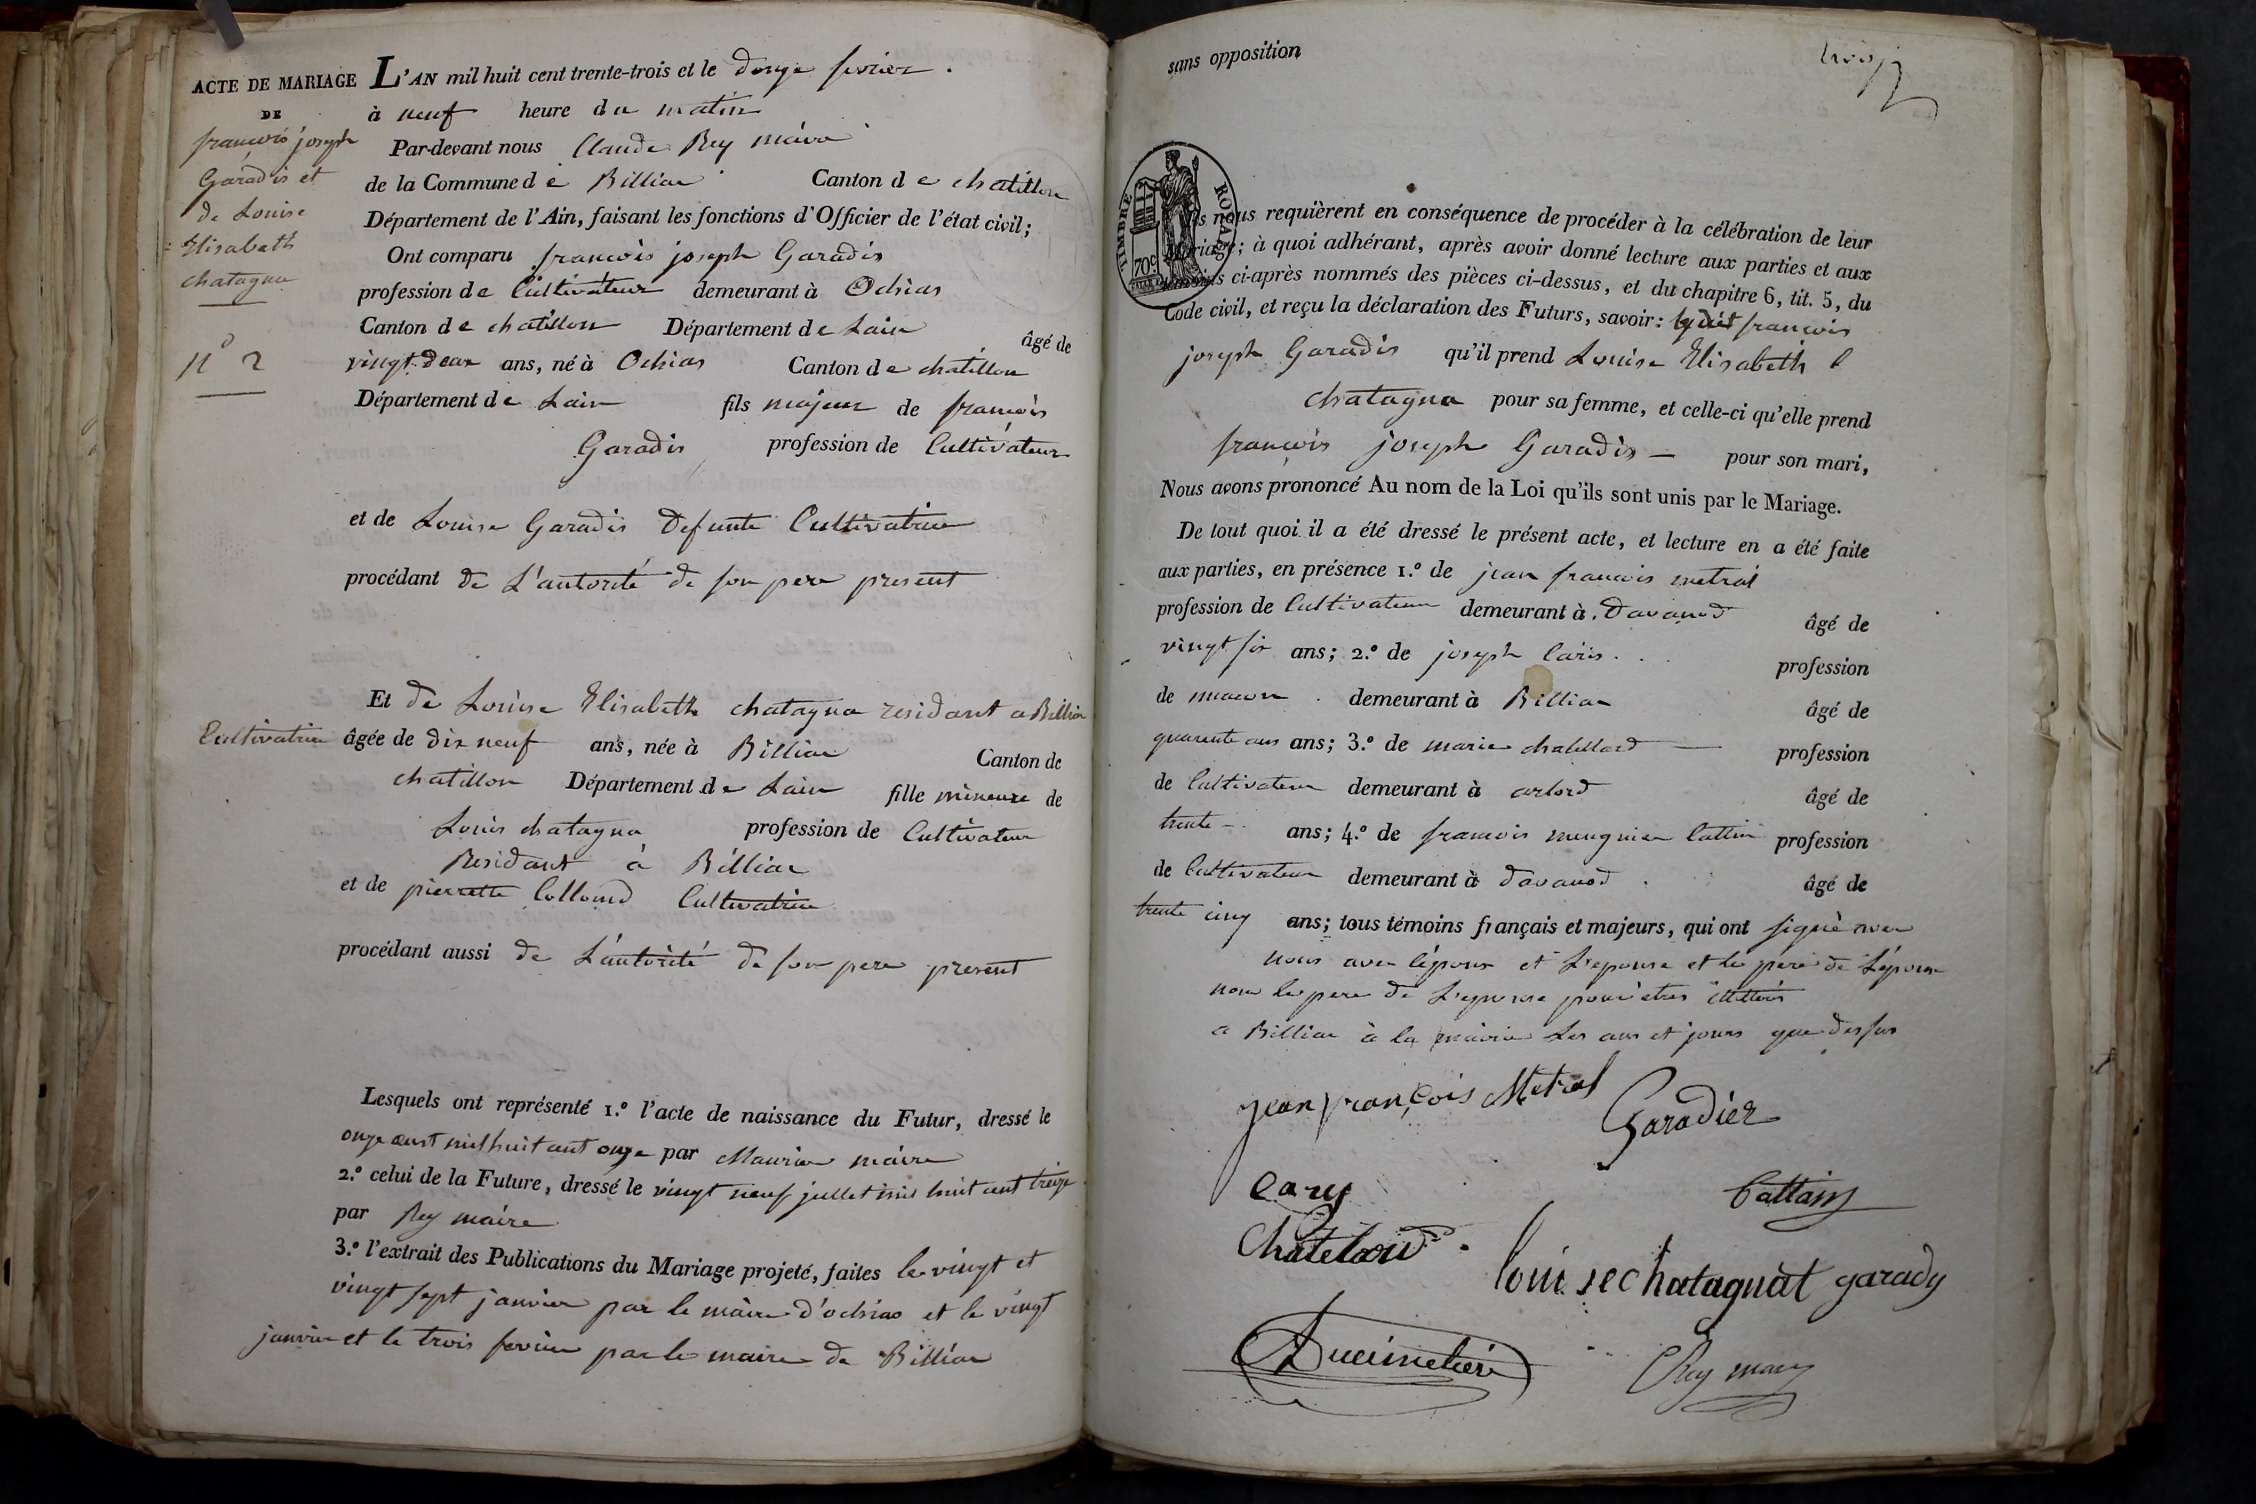 ACTE DE MARIAGE
DE
francois joseph
Garadis et
de Louise
Elisabeth
chatagna
n° 2
L'AN mil huit cent trente-trois et le douze fevrier.
à neuf heure du matin
Par-devant nous Claude Rey maire
de la Commune de Billiac Canton de chatillon
Département de l'Ain, faisant les fonctions d'Officier de l'état civil;
Ont comparu francois joseph Garadis
profession de Cultivateur demeurant à Ochias
Canton de chatillon Département de Lain âgé de
vingt-deux ans, né à Ochias Canton de chatillon
Département de Lain fils majeur de francois
Garadis profession de Cultivateur
et de Louise Garadis defunte Cultivatrice
procédant de L'autorité de son pere present
Et de Louise Elisabeth chatagna residant a Billiac
Cultivatrice âgée de dix neuf ans, née à Billiac Canton de
chatillon Département de Lain fille mineure de
Louis chatagna profession de Cultivateur
Residant à Billiac
et de pierrette Collomd Cultivatrice
procédant aussi de L'autorité de son pere present
Lesquels ont représenté 1.° l'acte de naissance du Futur, dressé le
onze aust mil huit cent onze par Maurier maire
2.° celui de la Future, dressé le vingt neuf jullet mil huit cent treize
par Rey maire
3.° l'extrait des Publications du Mariage projeté, faites le vingt et
vingt sept janvier par le maire d'ochias et le vingt
janvier et le trois fevrier par le maire de Billiac
sans opposition
trois
TIMBRE ROYAL
70c
Ils nous requièrent en conséquence de procéder à la célébration de leur
Mariage; à quoi adhérant, après avoir donné lecture aux parties et aux
témoins ci-après nommés des pièces ci-dessus, et du chapitre 6, tit. 5, du
Code civil, et reçu la déclaration des Futurs, savoir: francois
joseph Garadis qu'il prend Louise Elisabeth
chatagna pour sa femme, et celle-ci qu'elle prend
francois joseph Garadis — pour son mari,
Nous avons prononcé Au nom de la Loi qu'ils sont unis par le Mariage.
De tout quoi il a été dressé le présent acte, et lecture en a été faite
aux parties, en présence 1.° de jean francois metral
profession de Cultivateur demeurant à Davanod âgé de
vingt six ans; 2.° de joseph Caris profession
de macon demeurant à Billiac âgé de
quarente ans ans; 3.° de marie chatellard — profession
de Cultivateur demeurant à arlord âgé de
trente ans; 4.° de francois mugnier Cattin profession
de Cultivateur demeurant à davanod âgé de
trente cinq ans; tous témoins français et majeurs, qui ont signé avec
nous avec l'époux et L'epouse et le pere de L'épouse
non le pere de L'epouse pour etres illettrés
a Billiac à la mairie Les ans et jours que dessus
jean françois Metral
Garadier
Cary
Cattain
Chatelard
louise chatagnat garady
Rey maire